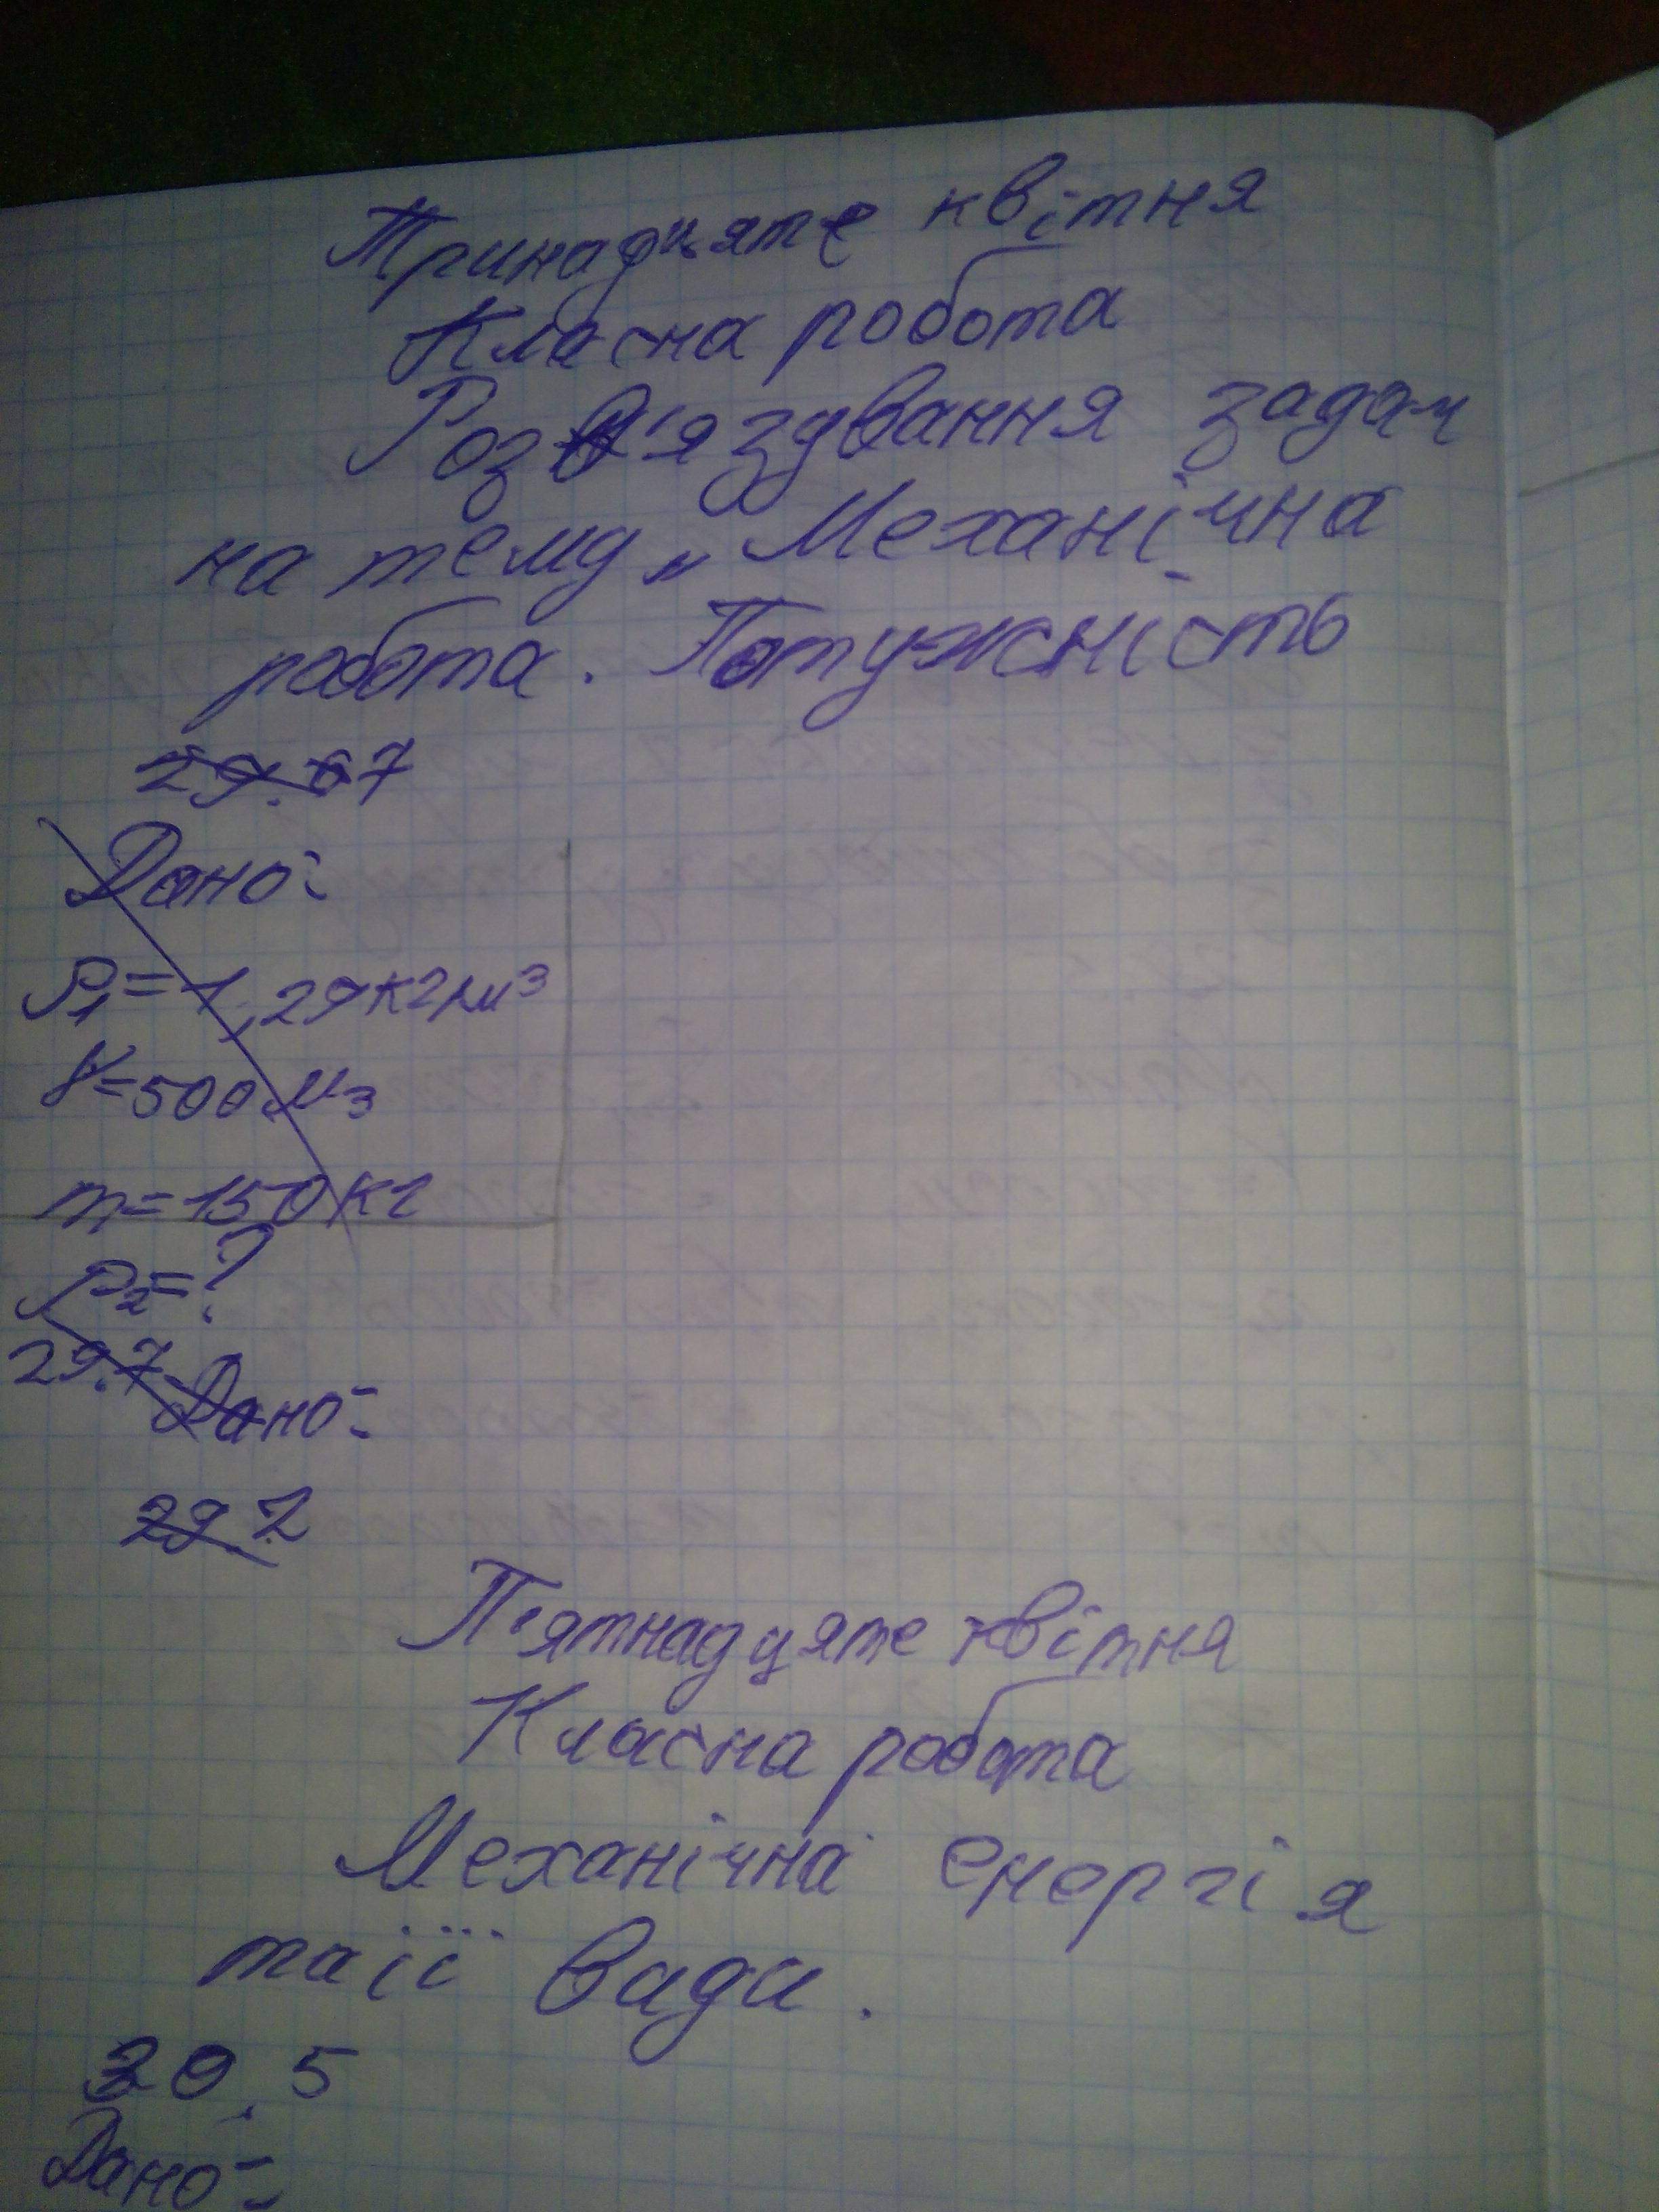 Тринадцяте квітня
Класна робота
Розв'язування задач
на тему „Механічна
робота. Потужність
29.67
Дано:
ρ₁=1,29кг/м³
V=500м3
m=150кг
ρ₂=?
29.7 Дано:
29.2
П'ятнадцяте квітня
Класна робота
Механічна енергія
таїї види.
30.5
Дано: